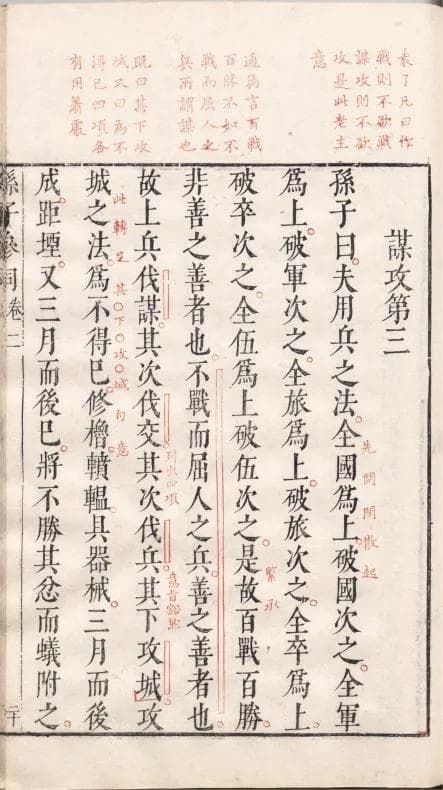 袁了凡曰作
戰則不欲戰
謀攻則不欲
攻是此老主
意
通篇言百戰
百勝不如不
戰而屈人之
兵所謂謀也
既曰其下攻
城又曰爲不
得已四項各
有用著處
謀攻第三
先開闊散起
孫子曰夫用兵之法全國爲上破國次之全軍
爲上破軍次之全旅爲上破旅次之全卒爲上
緊承
破卒次之全伍爲上破伍次之是故百戰百勝
非善之善者也不戰而屈人之兵善之善者也
列出四項
意旨豁然
故上兵伐謀其次伐交其次伐兵其下攻城攻
此轉是其下攻城句意
城之法爲不得已修櫓轒轀具器械三月而後
成距堙又三月而後已將不勝其忿而蟻附之
孫子參同 卷二 二十